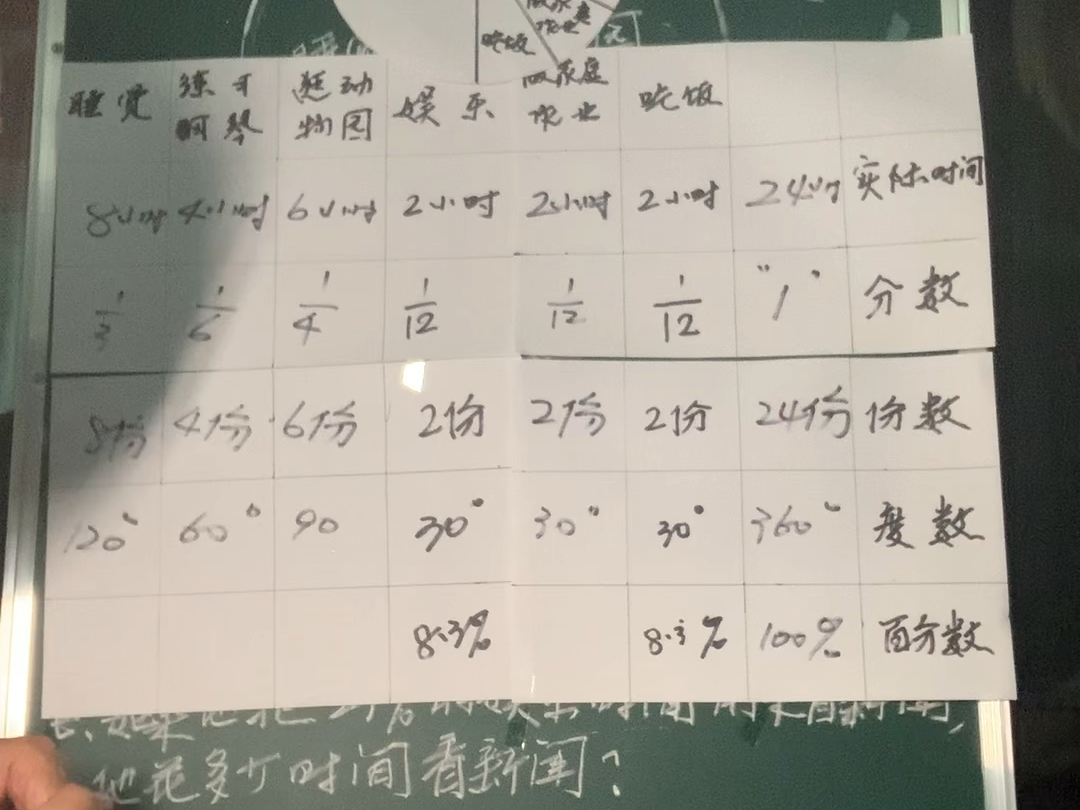 吃饭
睡觉 练习钢琴 逛动物园 娱乐 做家庭作业 吃饭
8小时 4小时 6小时 2小时 2小时 2小时 24小时 实际时间
1/3 1/6 1/4 1/12 1/12 1/12 "1" 分数
8份 4份 6份 2份 2份 2份 24份 份数
120° 60° 90 30° 30° 30° 360° 度数
8.3% 8.3% 100% 百分数
的娱乐时间用来看新闻,
他花多少时间看新闻?